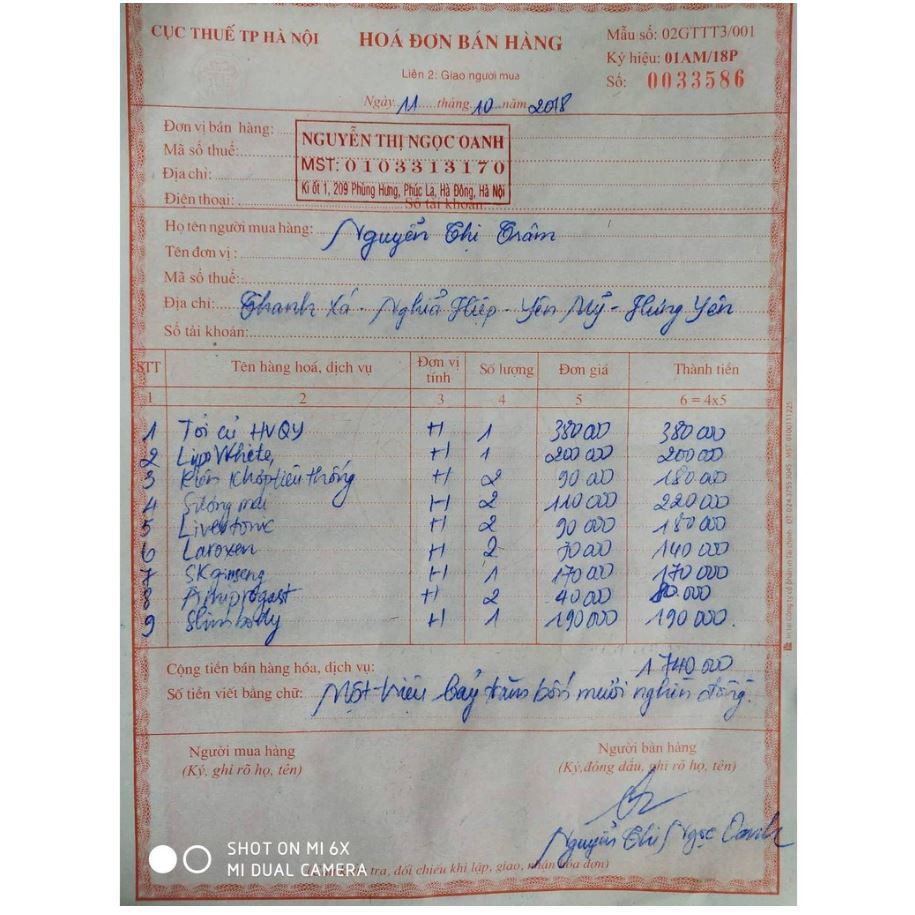 CỤC THUẾ TP HÀ NỘI
HOÁ ĐƠN BÁN HÀNG
Mẫu số: 02GTTT3/001
Ký hiệu: 01AM/18P
Liên 2: Giao người mua
Số: 0033586
Ngày 11 tháng 10 năm 2018
Đơn vị bán hàng:
NGUYỄN THỊ NGỌC OANH
Mã số thuế:
MST: 0103313170
Địa chỉ:
Ki ốt 1, 209 Phùng Hưng, Phúc La, Hà Đông, Hà Nội
Điện thoại: Số tài khoản:
Họ tên người mua hàng: Nguyễn Thị Trâm
Tên đơn vị:
Mã số thuế:
Địa chỉ: Thanh Xá - Nghĩa Hiệp - Yên Mỹ - Hưng Yên
Số tài khoản:
STT Tên hàng hoá, dịch vụ Đơn vị tính Số lượng Đơn giá Thành tiền
1 2 3 4 5 6 = 4x5
1 Tỏi củ HVQY H 1 380 000 380 000
2 Lipo White H 1 200 000 200 000
3 khớp tiêu thống H 2 90 000 180 000
4 H 2 110 000 220 000
5 Livestonc H 2 90 000 180 000
6 Laroxen H 2 70 000 140 000
7 SK ginseng H 1 170 000 170 000
8 H 2 40 000 80.000
9 Slimbody H 1 190 000 190 000.
Cộng tiền bán hàng hóa, dịch vụ: 1 740 000
Số tiền viết bằng chữ: Một triệu bảy trăm bốn mươi nghìn đồng.
Người mua hàng
(Ký, ghi rõ họ, tên)
Người bán hàng
(Ký, đóng dấu, ghi rõ họ, tên)
Nguyễn Thị Ngọc Oanh
tra, đối chiếu khi lập, giao, nhận hóa đơn)
SHOT ON MI 6X
MI DUAL CAMERA